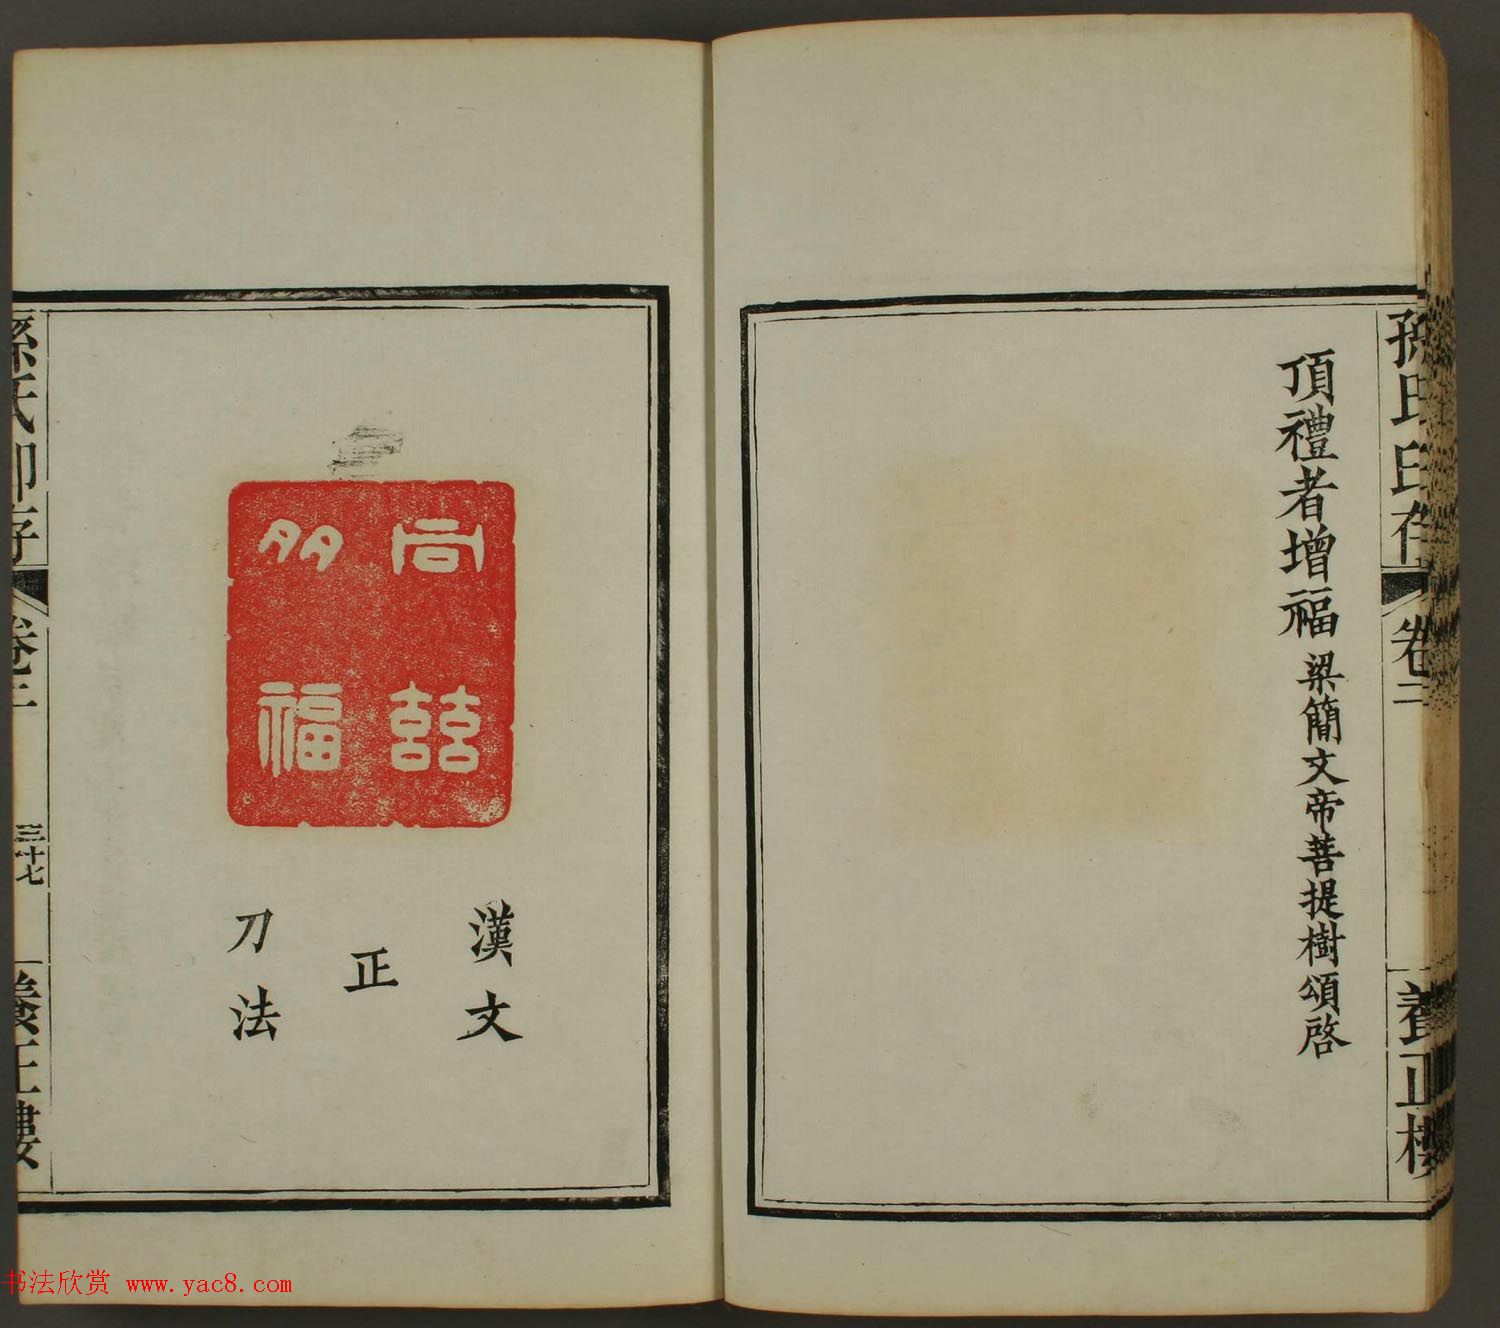 孫氏印存 卷二 養正樓
頂禮者增福 梁簡文帝菩提樹頌啓
多福
漢文
正
刀法
孫氏印存 卷二 三十七 養正樓
书法欣赏 www.yac8.com